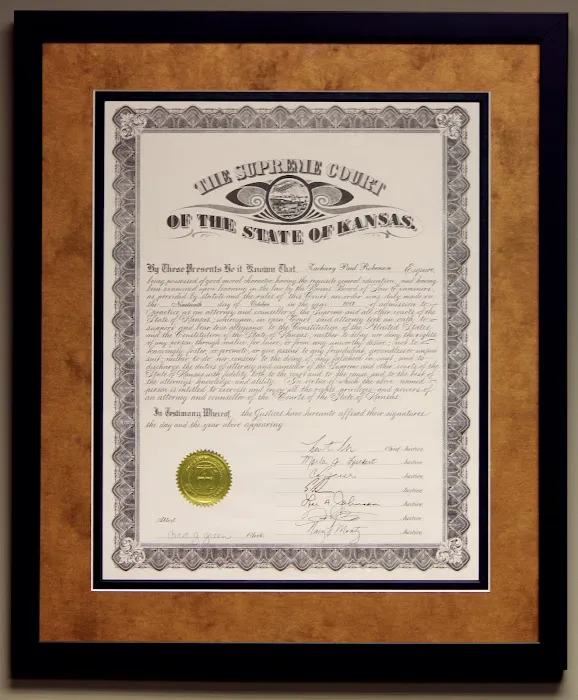 THE SUPREME COURT
OF THE STATE OF KANSAS,
By These Presents Be it Known That, Zachary Paul Roberson Esquire,
being possessed of good moral character, having the requisite general education, and having
been examined upon learning in the law by the Kansas Board of Law Examiners,
as provided by statute and the rules of this Court, an order was duly made on
the day of October in the year of admission to
practice as an attorney and counsellor of the Supreme and all other courts of the
State of Kansas, whereupon, in open Court said attorney took an oath to
support and bear true allegiance to the Constitution of the United States
and the Constitution of the State of Kansas; neither to delay nor deny the rights
of any person through malice, for lucre, or from any unworthy desire; not to
knowingly foster, or promote, or give assent to any fraudulent, groundless or unjust
suit; neither to do nor consent to the doing of any falsehood in court; and to
discharge the duties of attorney and counsellor of the Supreme and other courts of the
State of Kansas with fidelity both to the court and to the cause, and to the best of
the attorney's knowledge and ability. By virtue of which the above named
person is entitled to exercise and enjoy all the rights, privileges and powers of
an attorney and counsellor of the Courts of the State of Kansas.
In Testimony Whereof, the Justices have hereunto affixed their signatures
the day and the year above appearing
Chief Justice
Marla J. Luckert Justice
Justice
Justice
Lee A. Johnson Justice
Justice
Nancy Moritz Justice
Attest
Carol G. Green Clerk